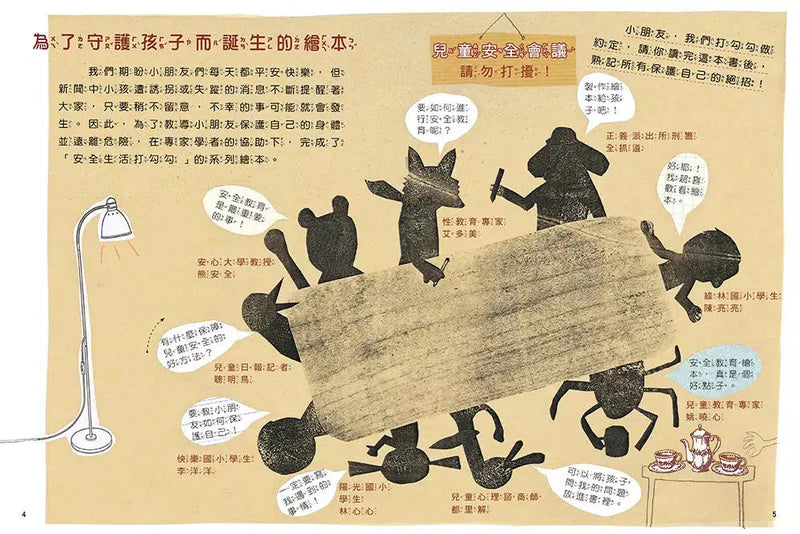 為了守護孩子而誕生的繪本
我們期盼小朋友們每天都平安快樂，但
新聞中小孩遭誘拐或失蹤的消息不斷提醒著
大家，只要稍不留意，不幸的事可能就會發
生。因此，為了教導小朋友保護自己的身體
並遠離危險，在專家學者的協助下，完成了
「安全生活打勾勾」的系列繪本。
兒童安全會議
請勿打擾！
小朋友，我們打勾勾做
約定，請你讀完這本書後，
熟記所有保護自己的絕招！
要如何進
行安全教
育呢？
製作繪
本給孩
子吧！
正義派出所刑警
全抓道
好耶！
我超喜
歡看繪
本。
安全教育
是最重要
的事！
性教育專家
艾多美
安心大學教授
熊安全
綠林國小學生
陳亮亮
有什麼保障
兒童安全的
好方法？
兒童日報記者
聰明鳥
安全教育繪
本，真是個
好點子。
兒童教育專家
姚曉心
要教小朋
友如何保
護自己！
快樂國小學生
李洋洋
一定要寫
我遇到的
事情！
陽光國小
學生
林心心
兒童心理諮商師
都里解
可以將孩子
問我的問題
放進書裡。
4
5